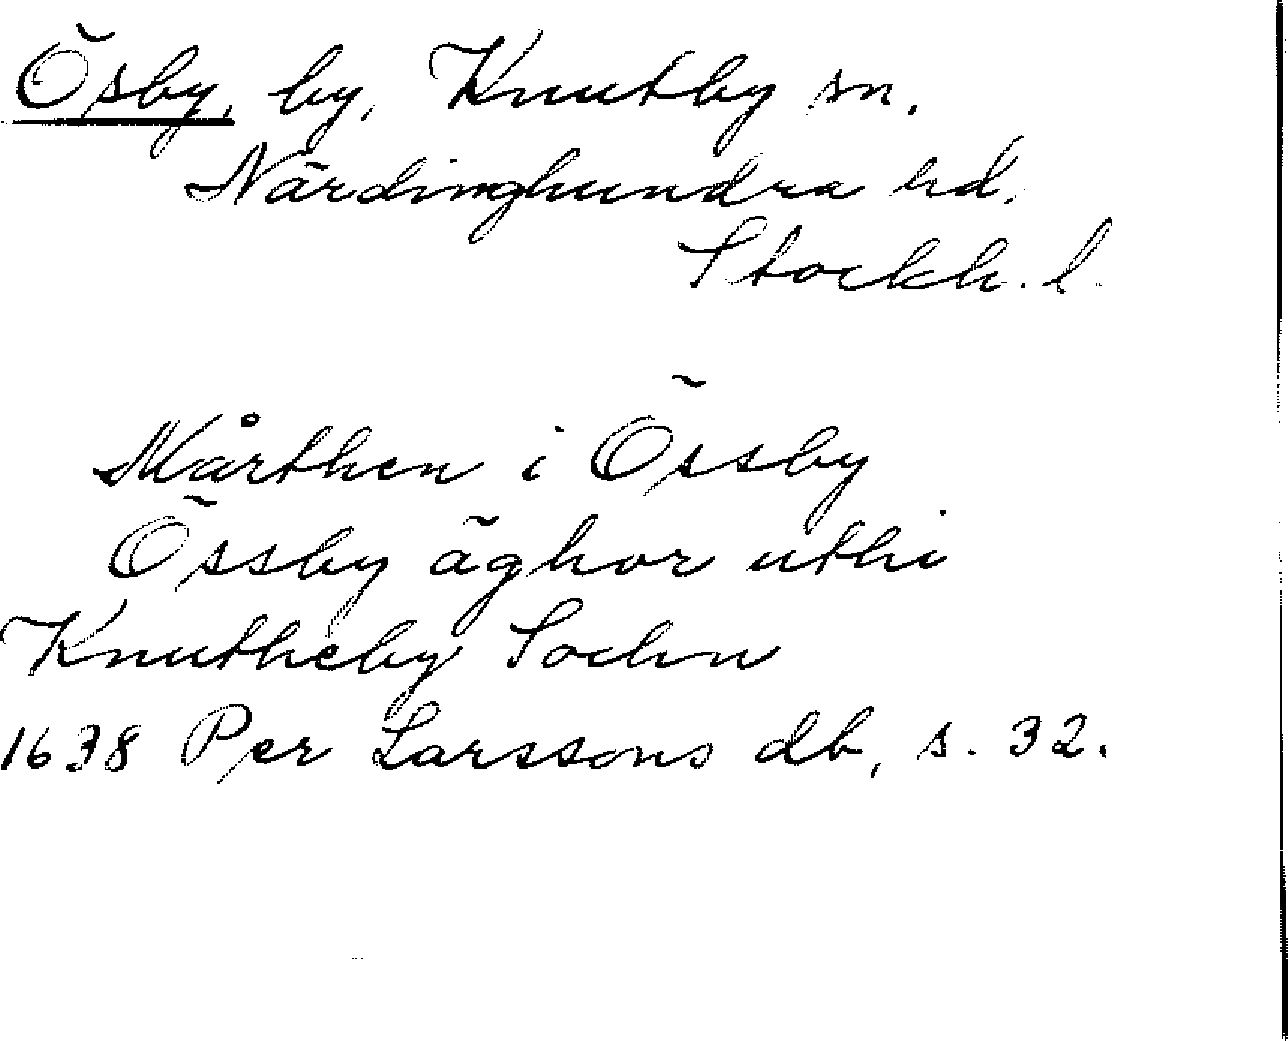 Ösby, by, Knutby sn.
Närdinghundra hd.
Stockh. l.
Mårthen i Össby
Össby äghor uthi
Knutheby Sochn
1638 Per Larssons db, s. 32.